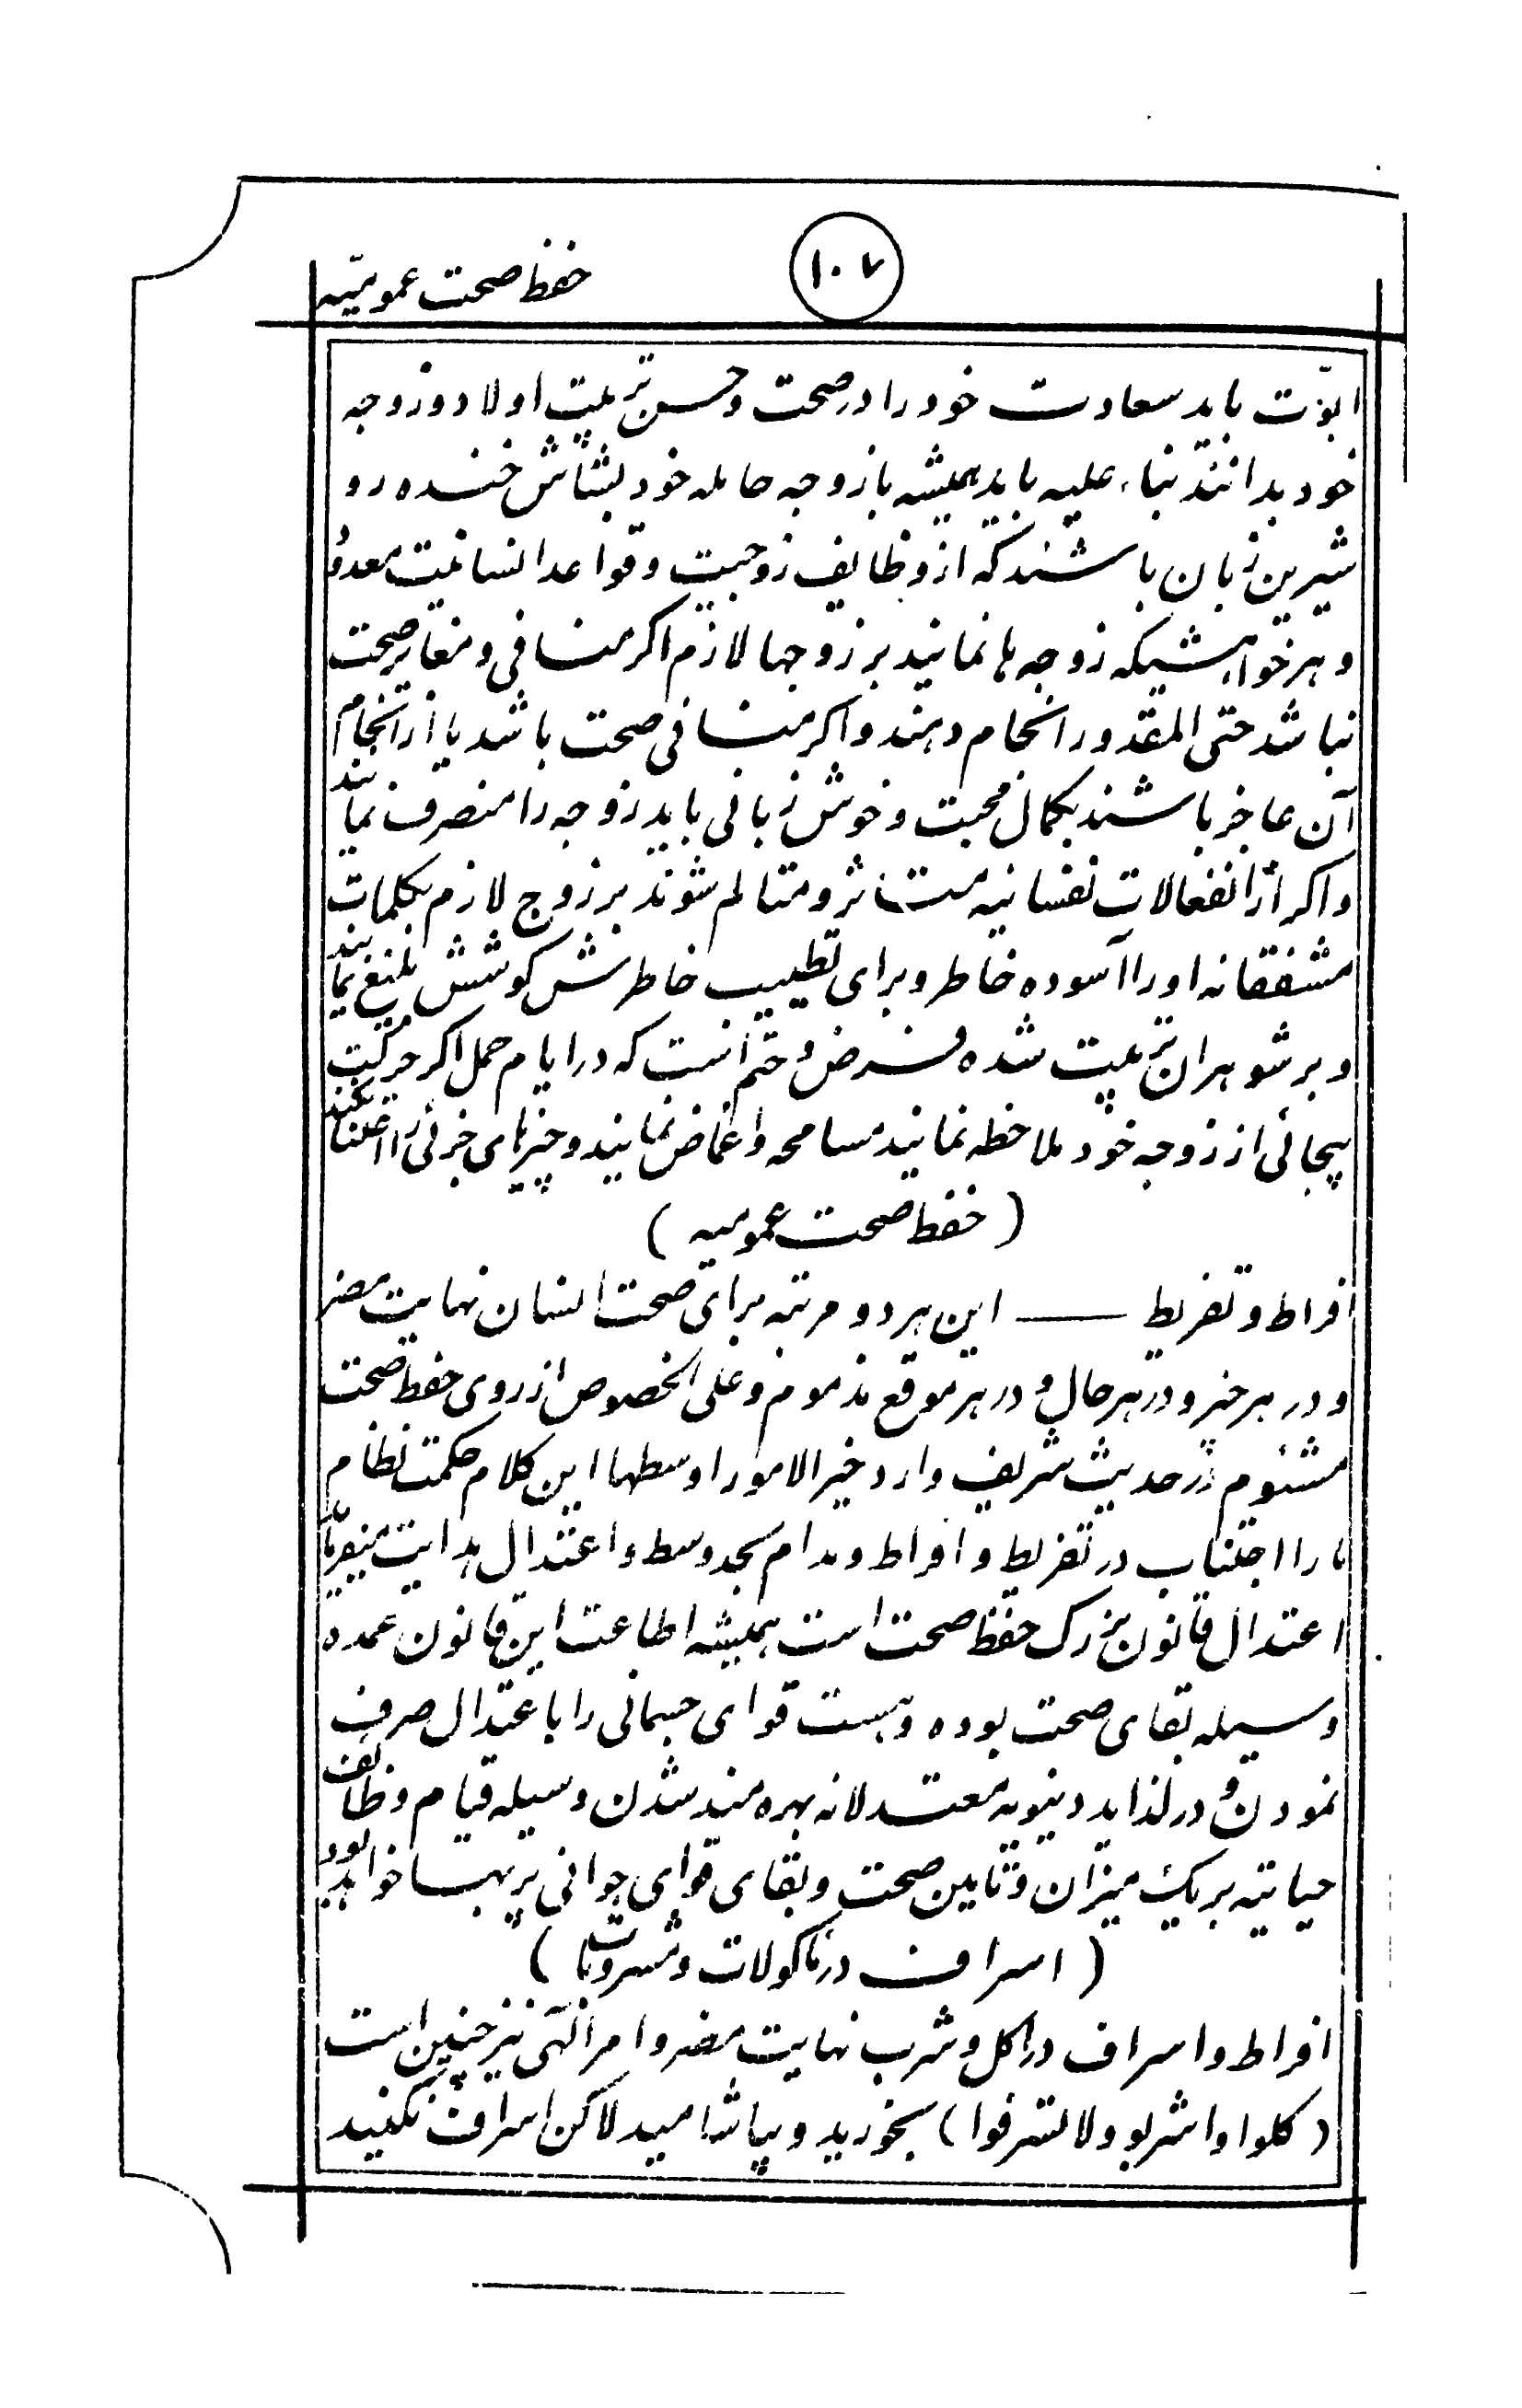 ۱۰۷
حفظ صحت عمومیّه
ابوّت باید سعادت خود را در صحت و حسن تربیت اولاد و زوجه
خود بدانند بناء علیه باید همیشه با زوجه حامله خود بشاش خنده رو
شیرین زبان باشند که از وظایف زوجیت و قواعد انسانیت معدود
و هر خواهشیکه زوجه ها نمایند بر زوجها لازم اگر منافی و مغایر صحت
نباشد حتی المقدور انجام دهند و اگر منافی صحت باشد یا از انجام
آن عاجز باشند بکمال محبت و خوش زبانی باید زوجه را منصرف نمایند
و اگر از انفعالات نفسانیه متاثر و متالم شوند بر زوج لازم بکلمات
مشفقانه او را آسوده خاطر و برای تطییب خاطرش کوشش بلیغ نمایند
و بر شوهران تربیت شده فرض و حتم است که در ایام حمل اگر حرکت
بیجائی از زوجه خود ملاحظه نمایند مسامحه و اغماض نمایند و چیزهای جزئی را اعتنا نکنند
( حفظ صحت عمومیه )
افراط و تفریط —— این هر دو مرتبه برای صحت انسان نهایت مضر
و در هر چیز و در هر حال و در هر موقع مذموم و علی الخصوص از روی حفظ صحت
مشئوم در حدیث شریف وارد خیر الامور اوسطها این کلام حکمت نظام
ما را اجتناب در تفریط و افراط و مدام بحد وسط و اعتدال هدایت میفرماید
اعتدال قانون بزرک حفظ صحت است همیشه اطاعت این قانون عمده
وسیله بقای صحت بوده و هست قوای جسمانی را باعتدال صرف
نمودن و در لذاید دنیویه معتدلانه بهره مند شدن وسیله قیام وظائف
حیاتیه بر یک میزان و تامین صحت و بقای قوای جوانی پر بها خواهد بود
( اسراف در ماکولات و مشروبات )
افراط و اسراف در اکل و شرب نهایت مضر و امر الهی نیز چنین است
( کلوا و اشربو ولا تسرفوا ) بخورید و بیاشامید لاکن اسراف نکنید